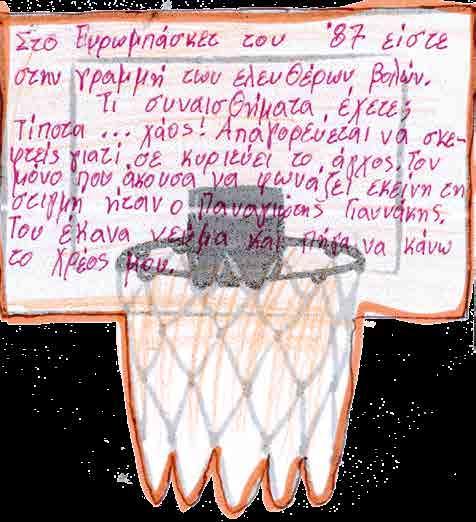 Στο Ευρωμπάσκετ του '87 είστε
στην γραμμή των ελευθέρων βολών.
Τι συναισθήματα έχετε;
Τίποτα... χάος! Απαγορεύεται να σκε-
φτείς γιατί σε κυριεύει το άγχος. Τον
μόνο που άκουσα να φωνάζει εκείνη τη
στιγμή ήταν ο Παναγιώτης Γιαννάκης.
Του έκανα νεύμα και πήγα να κάνω
το χρέος μου.